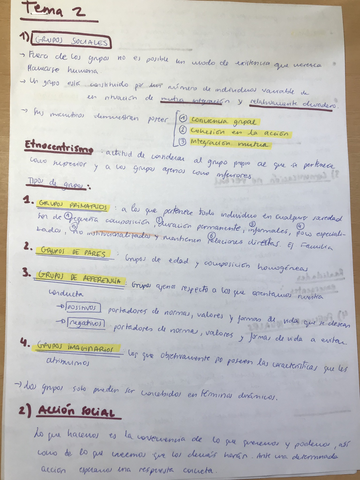 Tema 2
1) GRUPOS SOCIALES
→ Fuera de los grupos no es posible un modo de existencia que merezca
llamarse humana
→ Un grupo está constituido por un número de individuos variable
en situación de mutua interacción y relativamente duradera
→ Sus miembros demuestran poseer
1 conciencia grupal
2 cohesión en la acción
3 integración mutua
Etnocentrismo: actitud de considerar al grupo propio al que se pertenece
como superior y a los grupos ajenos como inferiores.
Tipos de grupos:
1. GRUPOS PRIMARIOS: a los que pertenece todo individuo en cualquier sociedad
son de pequeña composición, duración permanente, informales, poco especiali-
zados, no institucionalizados y mantienen relaciones directas. Ej: familia
2. GRUPOS DE PARES: Grupos de edad y composición homogéneas
3. GRUPOS DE REFERENCIA: Grupo ajeno respecto a los que orientamos nuestra
conducta
→ positivos: portadores de normas, valores y formas de vida que se desean
→ negativos: portadores de normas, valores y formas de vida a evitar
4. GRUPOS IMAGINARIOS: los que objetivamente no poseen las características que les
atribuimos
→ Los grupos solo pueden ser considerados en términos dinámicos.
2) ACCIÓN SOCIAL
Lo que hacemos es la consecuencia de lo que queremos y podemos, así
como de lo que creemos que los demás harán. Ante una determinada
acción espera una respuesta concreta.